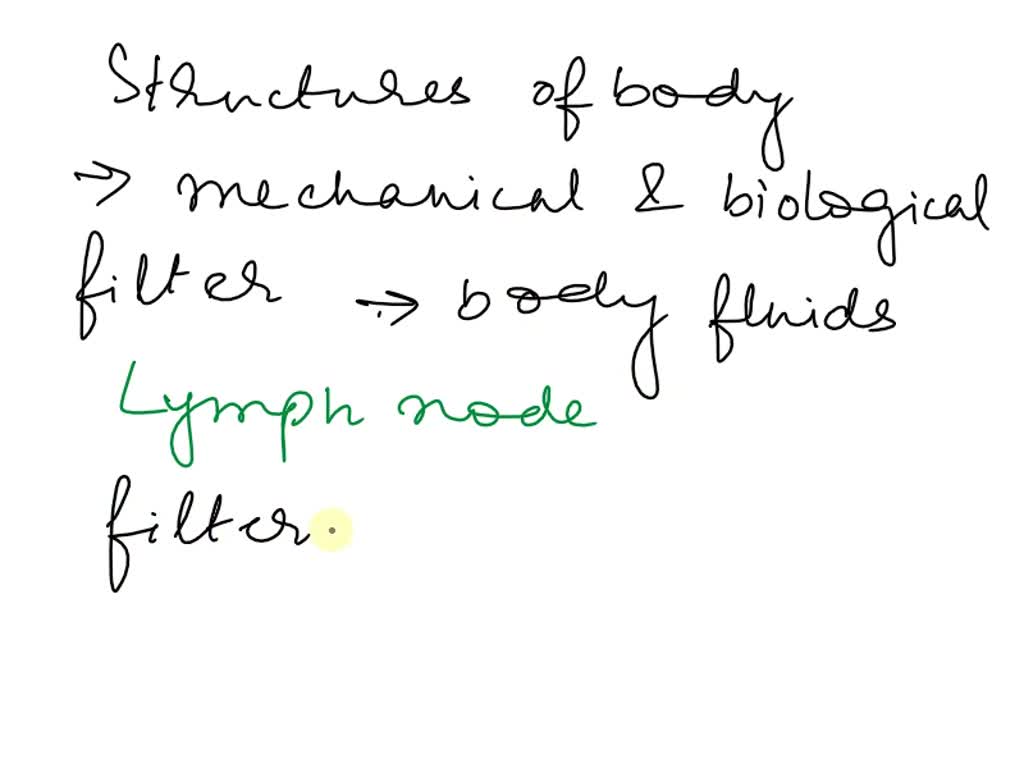 Structures of body
→ mechanical & biological
filter → body fluids
Lymph node
filter